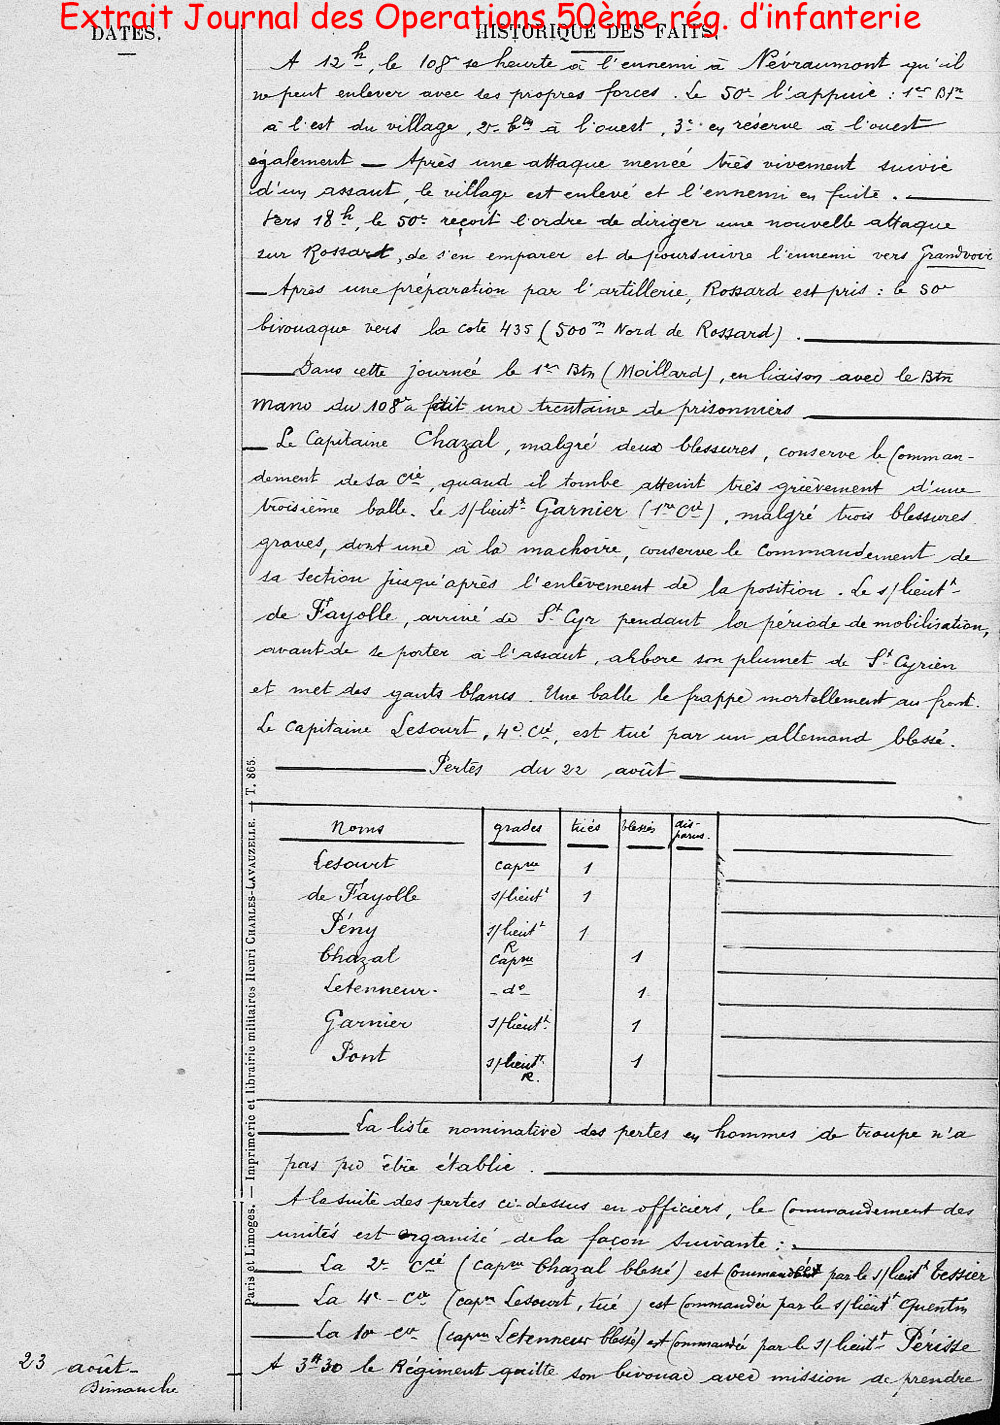 Extrait Journal des Operations 50ème rég. d'infanterie
DATES.
HISTORIQUE DES FAITS.
A 12h, le 108e se heurte à l'ennemi à Névraumont qu'il
ne peut enlever avec ses propres forces. Le 50e l'appuie : 1er Btn
à l'est du village, 2e btn à l'ouest, 3e en réserve à l'ouest
également — Après une attaque menée très vivement suivie
d'un assaut, le village est enlevé et l'ennemi en fuite.
Vers 18h, le 50e reçoit l'ordre de diriger une nouvelle attaque
sur Rossart, de s'en emparer et de poursuivre l'ennemi vers Grandvoir
— Après une préparation par l'artillerie, Rossard est pris : le 50e
bivouaque vers la cote 435 (500m Nord de Rossard).
Dans cette journée le 1er Btn (Moillard), en liaison avec le Btn
Mano du 108e a fait une trentaine de prisonniers
— Le Capitaine Chazal, malgré deux blessures, conserve le Comman-
dement de sa Cie, quand il tombe atteint très grièvement d'une
troisième balle. Le s/lieutt Garnier (1re Cie), malgré trois blessures
graves, dont une à la machoire, conserve le Commandement de
sa section jusqu'après l'enlèvement de la position. Le s/lieutt
de Fayolle, arrivé de St Cyr pendant la période de mobilisation,
avant de se porter à l'assaut, arbore son plumet de St Cyrien
et met des gants blancs. Une balle le frappe mortellement au front.
Le capitaine Lesourt, 4e Cie, est tué par un allemand blessé.
Pertes du 22 août
Noms grades tués blessés dis-parus.
Lesourt capne 1
de Fayolle s/lieutt 1
Pény s/lieutt R 1
Chazal capne 1
Letenneur - do 1
Garnier s/lieutt 1
Pont s/lieutt R. 1
La liste nominative des pertes en hommes de troupe n'a
pas pu être établie.
A la suite des pertes ci-dessus en officiers, le Commandement des
unités est organisé de la façon suivante :
La 2e Cie (capne Chazal blessé) est Commandée par le s/lieutt Tessier
La 4e - Cie (capne Lesourt, tué) est Commandée par le s/lieutt Quentin
La 10e Cie (capne Letenneur blessé) est Commandée par le s/lieutt Périsse
23 août
Dimanche
A 3H30 le Régiment quitte son bivouac avec mission de prendre
Paris et Limoges. — Imprimerie et librairie militaires Henri CHARLES-LAVAUZELLE. — T. 865.